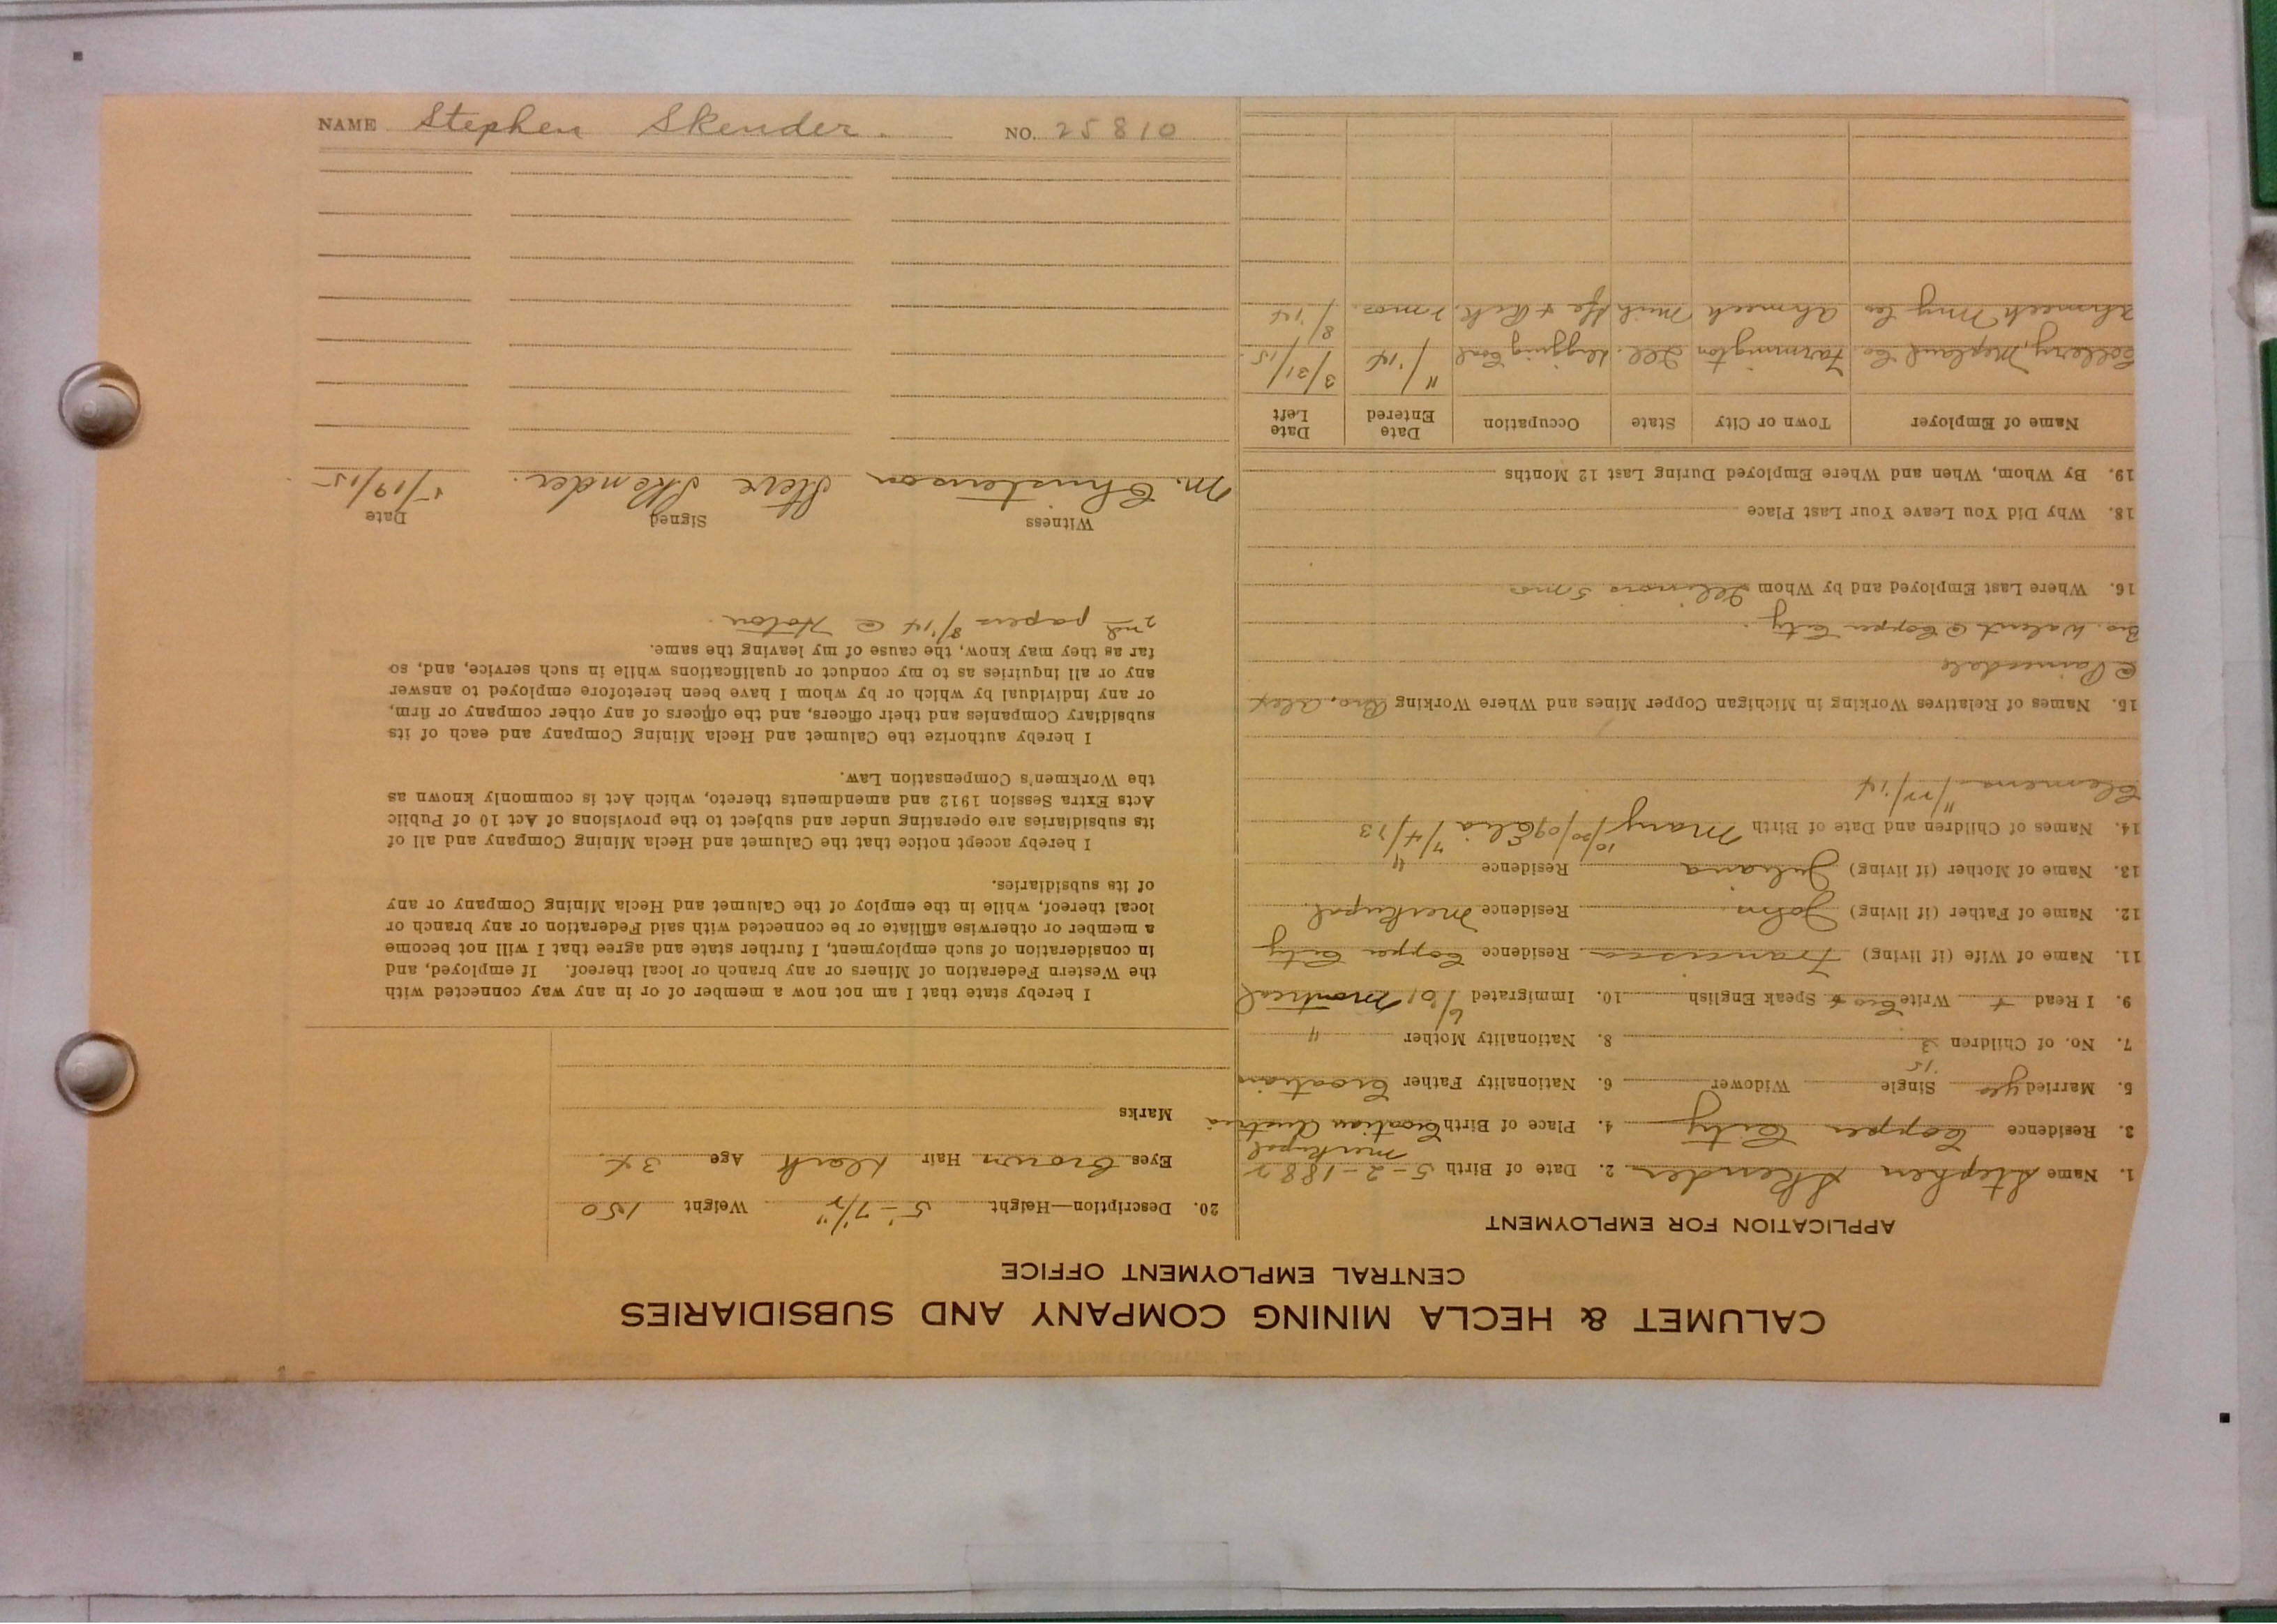 NAME Stephen Skender. NO. 25810
CALUMET & HECLA MINING COMPANY AND SUBSIDIARIES
CENTRAL EMPLOYMENT OFFICE
APPLICATION FOR EMPLOYMENT
1. Name Stephen Skender 2. Date of Birth 5-2-1882
Merkupol
3. Residence Copper City 4. Place of Birth Croatian Austria
5. Married yes Single Widower 6. Nationality Father Croatian
15
7. No. of Children 3 8. Nationality Mother "
9. I Read + Write Cro + Speak English 10. Immigrated 6/01 Montreal
11. Name of Wife (if living) Francisca Residence Copper City
12. Name of Father (if living) John Residence Merkupol
13. Name of Mother (if living) Juliana Residence "
14. Names of Children and Date of Birth Mary 10/20/09 7/4/13
Clemens 11/22/14
15. Names of Relatives Working in Michigan Copper Mines and Where Working Bro, Alex
@ Painesdale
Bro. @ Copper City.
16. Where Last Employed and by Whom Illinois 5 mos
18. Why Did You Leave Your Last Place
19. By Whom, When and Where Employed During Last 12 Months
Name of Employer Town or City State Occupation Date Entered Date Left
Co Farmington Ill. Digging Coal 11/14 3/31/15.
Ahmeek Mng Co Ahmeek Mich 2 mos. 8/14
20. Description—Height 5'-7 1/2" Weight 150
Eyes Brown Hair Dark Age 32
Marks
I hereby state that I am not now a member of or in any way connected with
the Western Federation of Miners or any branch or local thereof. If employed, and
in consideration of such employment, I further state and agree that I will not become
a member or otherwise affiliate or be connected with said Federation or any branch or
local thereof, while in the employ of the Calumet and Hecla Mining Company or any
of its subsidiaries.
I hereby accept notice that the Calumet and Hecla Mining Company and all of
its subsidiaries are operating under and subject to the provisions of Act 10 of Public
Acts Extra Session 1912 and amendments thereto, which Act is commonly known as
the Workmen's Compensation Law.
I hereby authorize the Calumet and Hecla Mining Company and each of its
subsidiary Companies and their officers, and the officers of any other company or firm,
or any individual by which or by whom I have been heretofore employed to answer
any or all inquiries as to my conduct or qualifications while in such service, and, so
far as they may know, the cause of my leaving the same.
2nd papers 8/14 @ Hoton.
Witness Signed Date
M. Christenson Steve Skender. 5/19/15